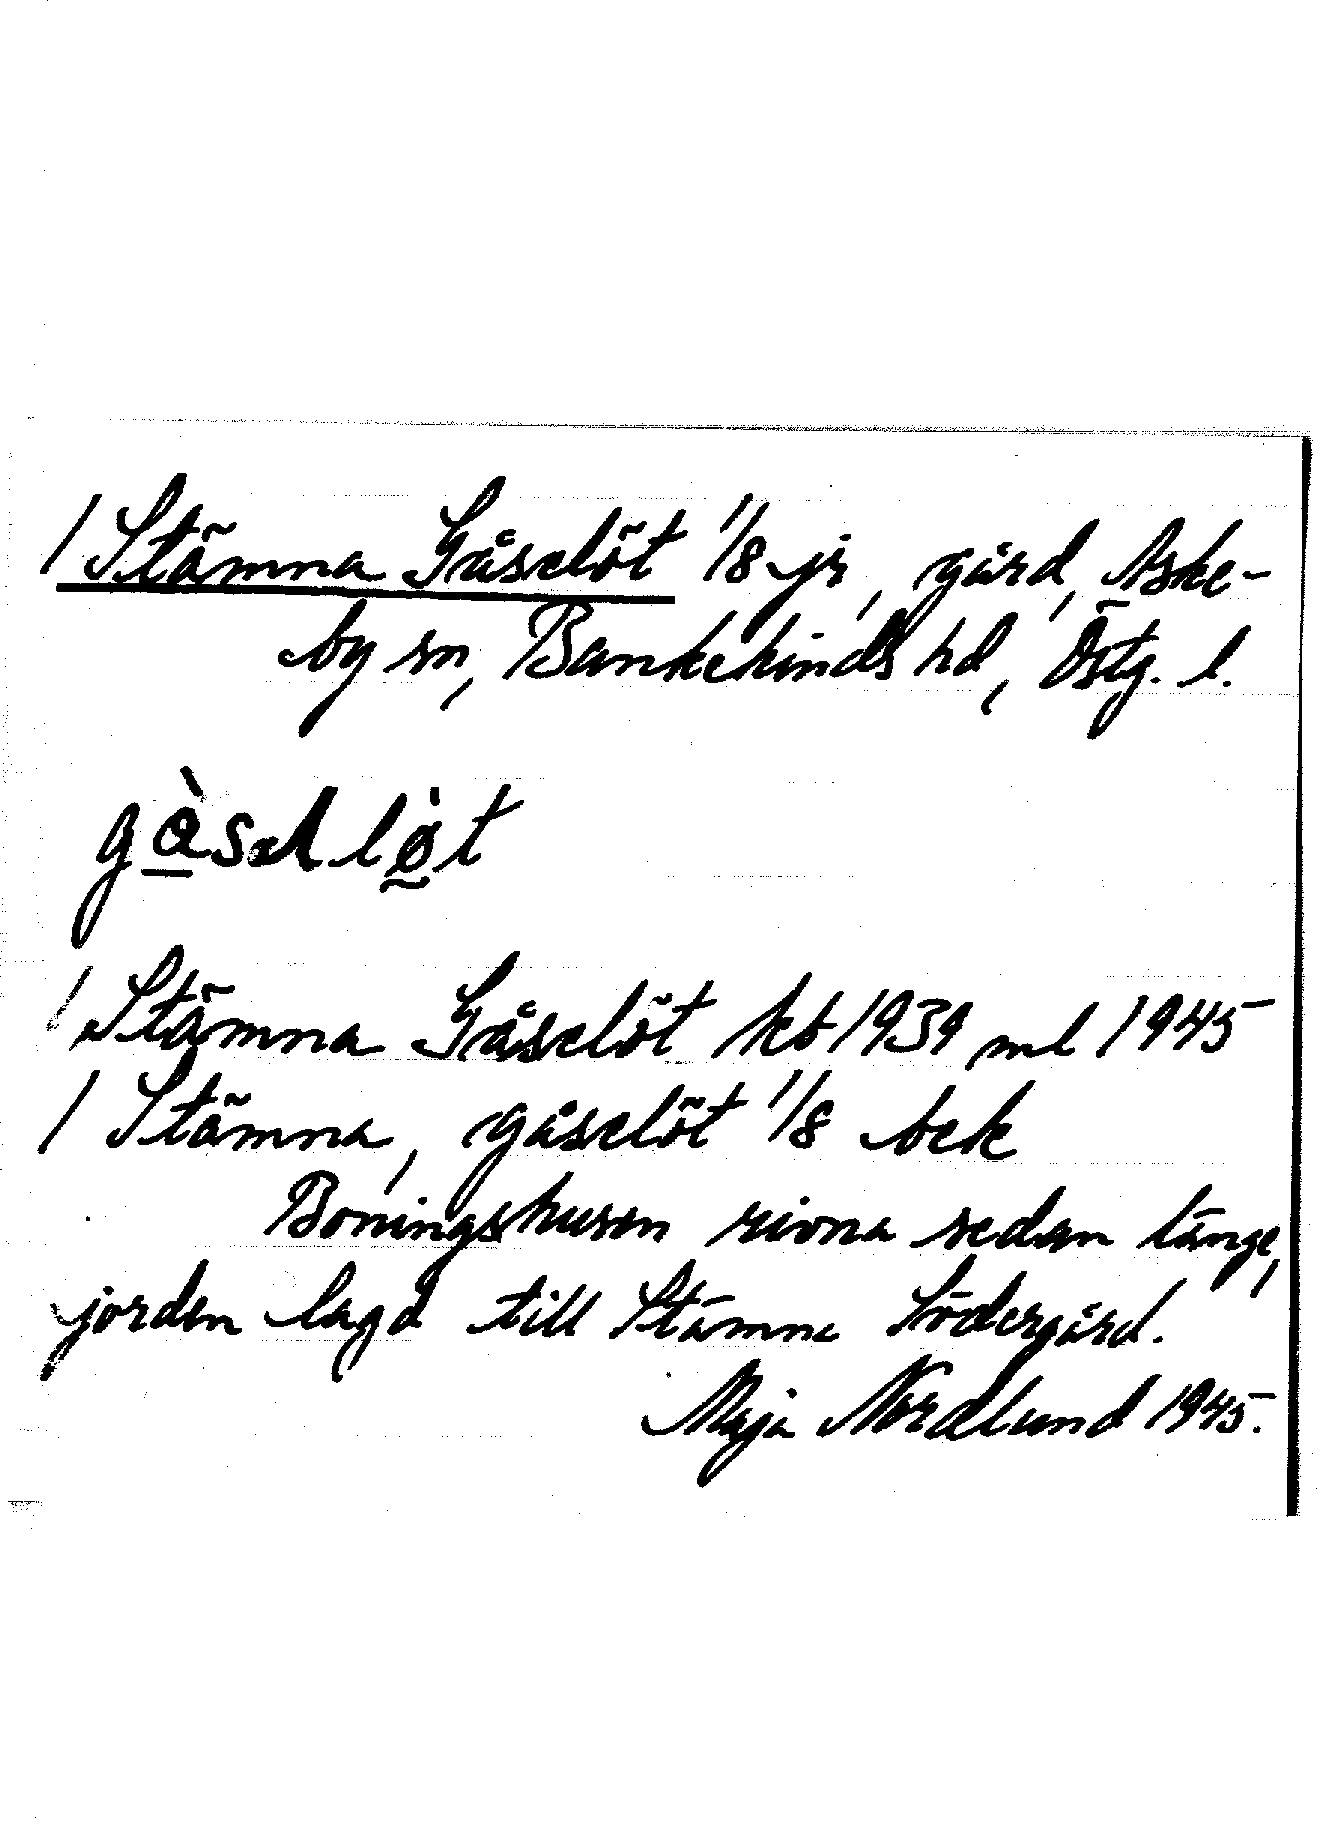 / Stämna Gåselöt 1/8 jr, gård, Aske-
by sn, Bankekinds hd, Östg. l.
/ Stämna Gåselöt kb 1939 ml 1945
/ Stämna, gåselöt 1/8 bek
Boningshusen rivna sedan länge,
jorden lagd till Stämna Södergård.
Maja Nordlund 1945.